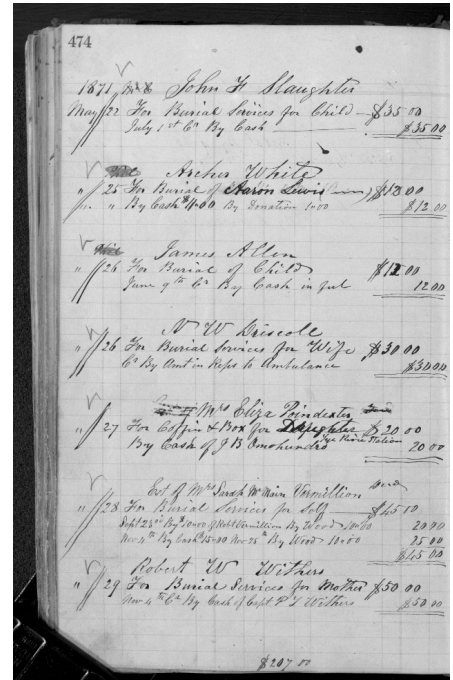 474
1871 John F Slaughter
May 22 For Burial Services for Child $35 00
July 1st Cr By Cash $35 00
Archer White
" 25 For Burial of Aaron Lewis $12 00
" " By Cash $11 00 By Donation 1 00 $12 00
James Allen
" 26 For Burial of Child $12 00
June 9th Cr By Cash in ful 12 00
N W Driscoll
" 26 For Burial Services for Wife $30 00
Cr By Amt in Reps to Ambulance $30 00
Mrs Eliza Poindexter
" 27 For Coffin & Box for Daughter $20 00
Tye River Station
By Cash of J B Omohundro 20 00
Est of Mrs Sarah Mc Main Vermillion
" 28 For Burial Services for Self $45 00
Sept 23rd By 10 00 of Robt Vermillion By Wood 10 00 20 00
Nov 5th By Cash 15 00 Nov 25th By Wood 10 00 25 00
$45 00
Robert W Withers
" 29 For Burial Services for Mother $50 00
Nov 4th Cr By Cash of Capt P T Withers $50 00
$207 00